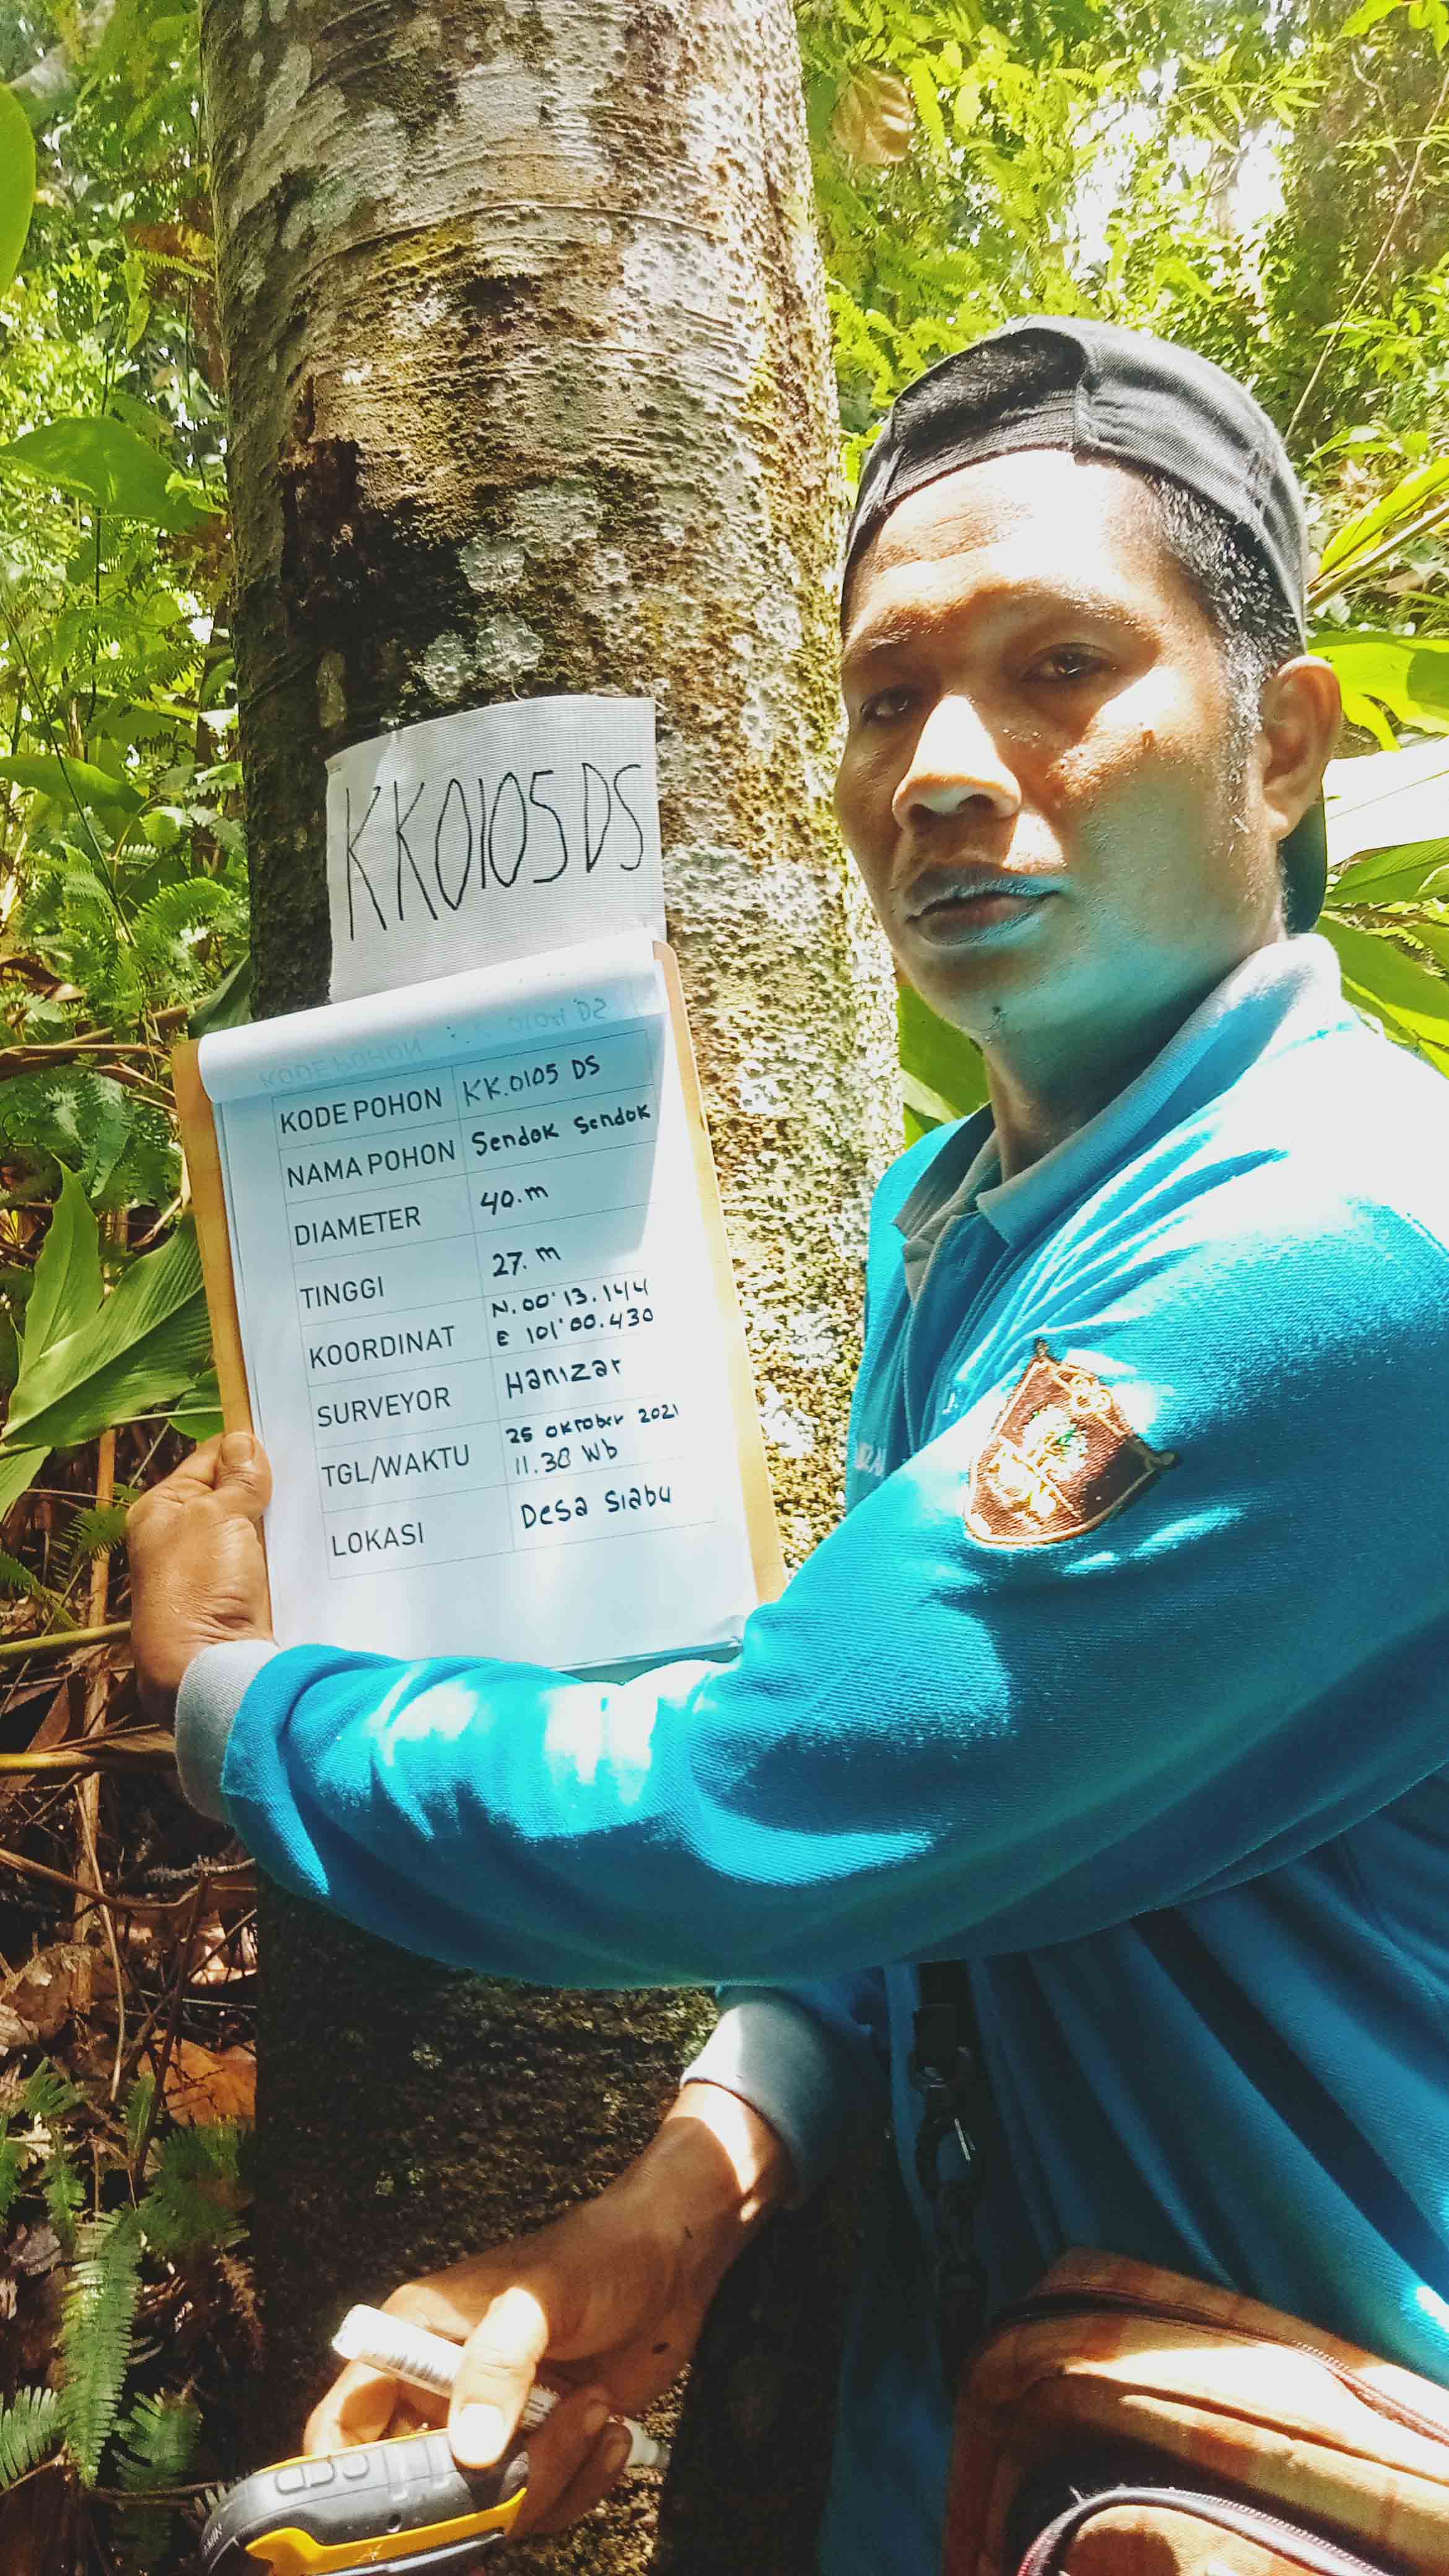 KK0105 DS
KODE POHON KK.0105 DS
NAMA POHON Sendok Sendok
DIAMETER 40.m
TINGGI 27. m
KOORDINAT N.00'13.144
E 101'00.430
SURVEYOR Hamizar
TGL/WAKTU 25 oktober 2021
11.38 Wb
LOKASI Desa Siabu